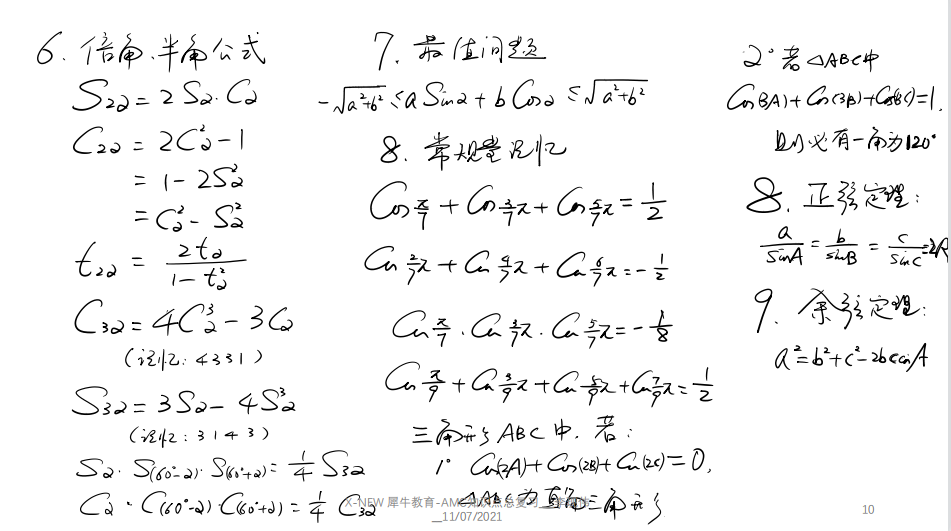 6. 倍角、半角公式
S2α = 2Sα·Cα
C2α = 2Cα² - 1
= 1 - 2Sα²
= Cα² - Sα²
t2α = 2tα / (1 - tα²)
C3α = 4Cα³ - 3Cα
(记忆: 4331)
S3α = 3Sα - 4Sα³
(记忆: 3143)
Sα · S(60°-α) · S(60°+α) = 1/4 S3α
Cα · C(60°-α) · C(60°+α) = 1/4 C3α
7. 最值问题
-√(a²+b²) ≤ a Sinα + b Cosα ≤ √(a²+b²)
8. 常规量记忆
Cos π/7 + Cos 3/7 π + Cos 5/7 π = 1/2
Cos 2/7 π + Cos 4/7 π + Cos 6/7 π = -1/2
Cos π/7 · Cos 3/7 π · Cos 5/7 π = -1/8
Cos π/9 + Cos 3/9 π + Cos 5/9 π + Cos 7/9 π = 1/2
三角形 ABC 中, 若:
1° Cos(2A) + Cos(2B) + Cos(2C) = 0,
△ABC 为直角三角形
2° 若 △ABC 中
Cos(3A) + Cos(3B) + Cos(3C) = 1,
则必有一角为120°
8. 正弦定理:
a/sinA = b/sinB = c/sinC = 2R
9. 余弦定理:
a² = b² + c² - 2bc cosA
X-NEW 犀牛教育-AMC知识点总复习
__11/07/2021
10